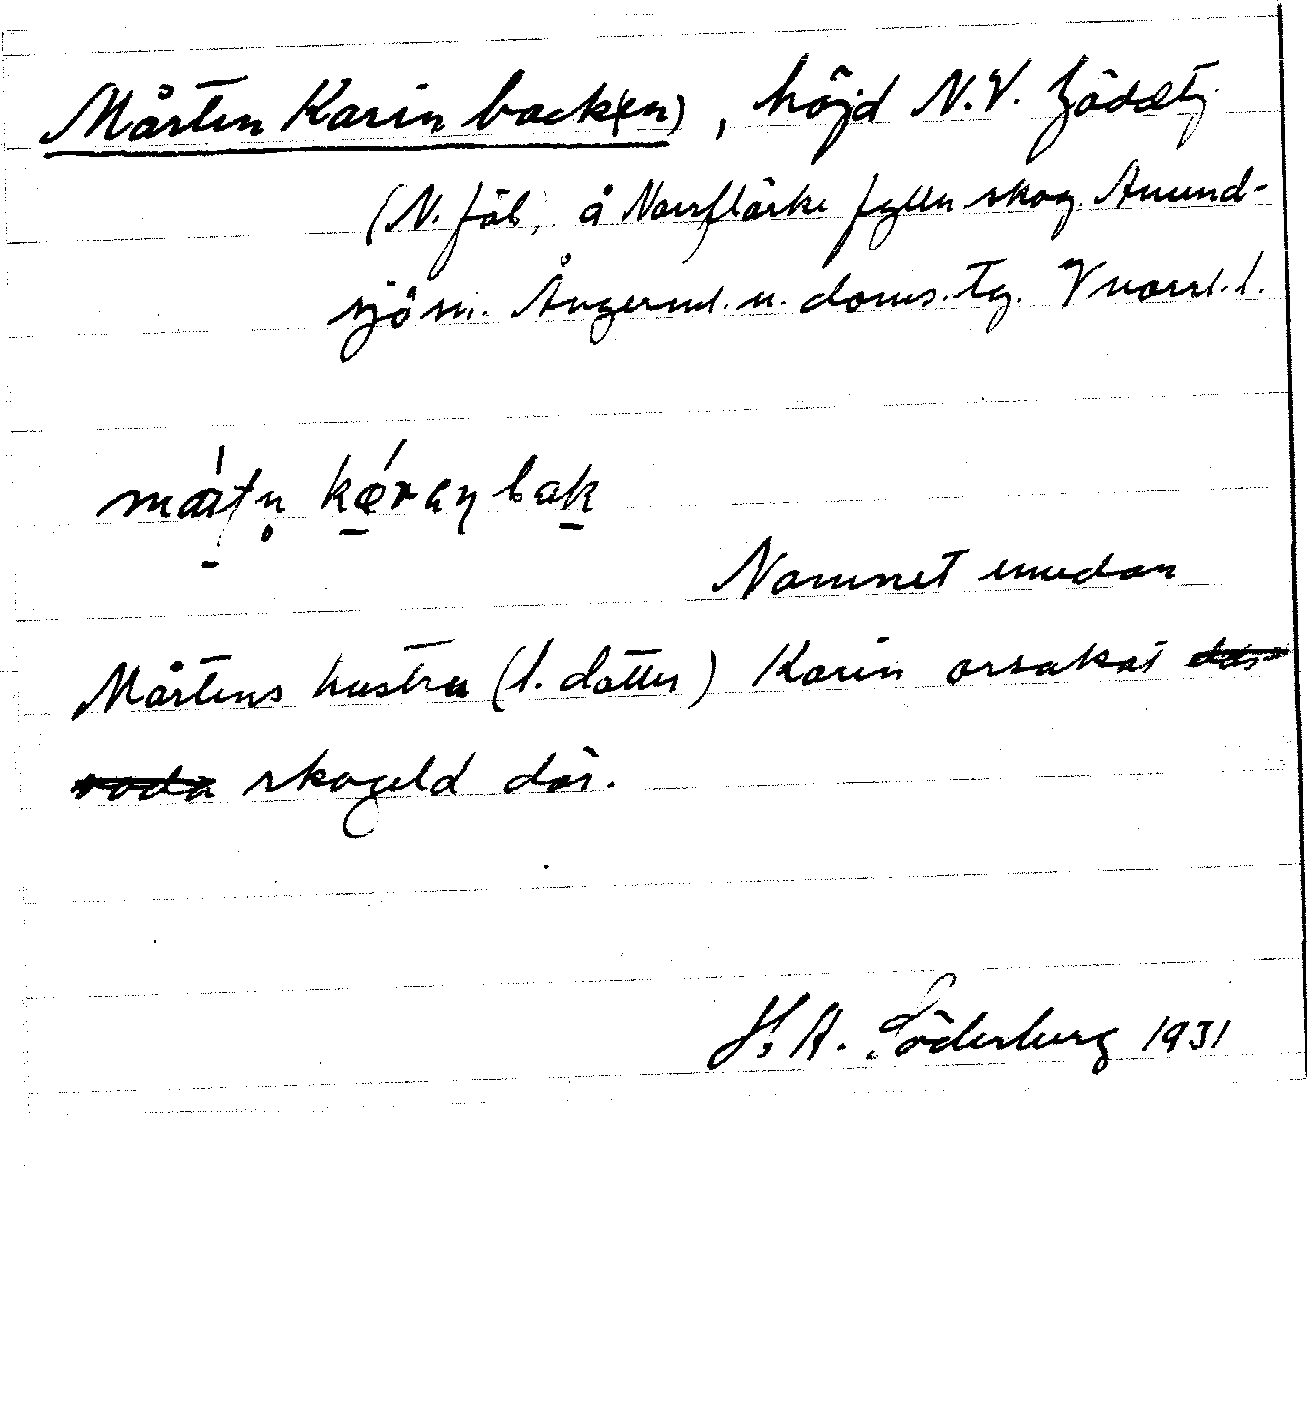 Mårten Karin back(en), höjd N.V. Gäddtj.
(N. fäb, å Norrflärke fylln skog. Anund-
sjö sn. Ångerml. n. doms. tg. Vnorrl. l.
mårtn karen bak
Namnet emedan
Mårtens hustru (l. dotter) Karin orsakat
skogeld där.
H. A. Söderberg 1931